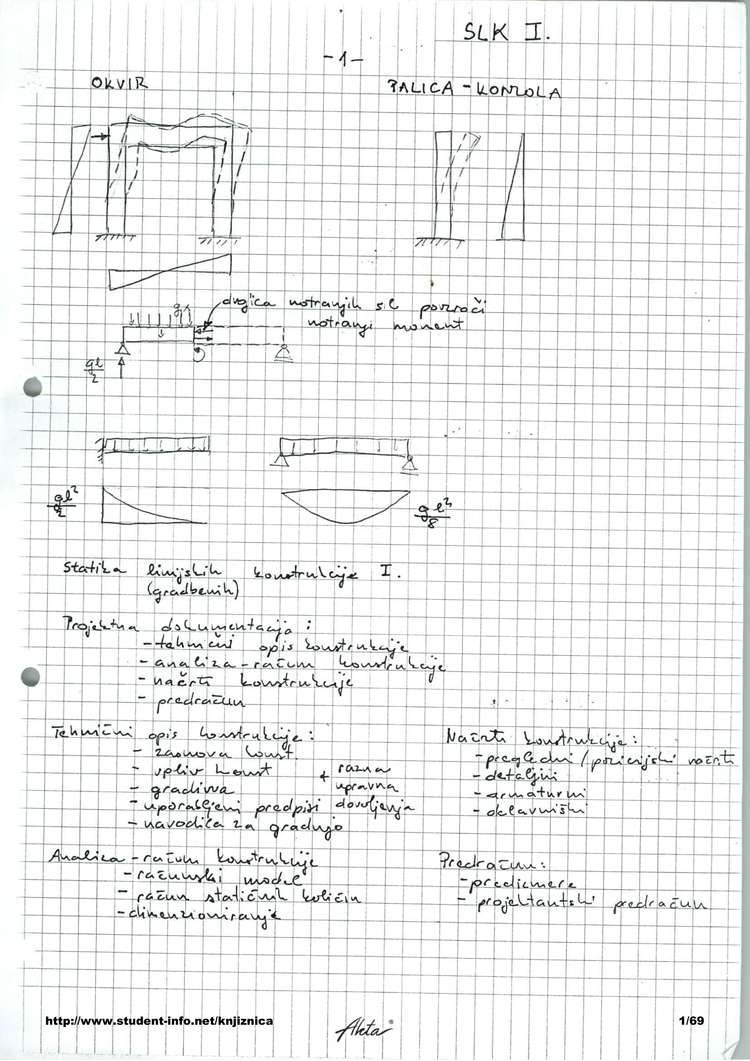 SLK I.
-1-
OKVIR
PALICA - KONZOLA
dvojica notranjih sil povzroči
notranji moment
gl/2
gl²/2
gl²/8
Statika linijskih konstrukcije I.
(gradbenih)
Projektna dokumentacija:
- tehnični opis konstrukcije
- analiza - račun konstrukcije
- načrti konstrukcije
- predračun
Tehnični opis konstrukcije:
- zasnova konst.
- vpliv konst
- gradiva
- uporabljeni predpisi
- navodila za gradnjo
+ razna
upravna
dovoljenja
Načrti konstrukcije:
- pregledni / pozicijski načrti
- detaljni
- armaturni
- delavniški
Analiza - račun konstrukcije
- računski model
- račun statičnih količin
- dimenzioniranje
Predračun:
- predizmere
- projektantski predračun
http://www.student-info.net/knjiznica
Akta
1/69